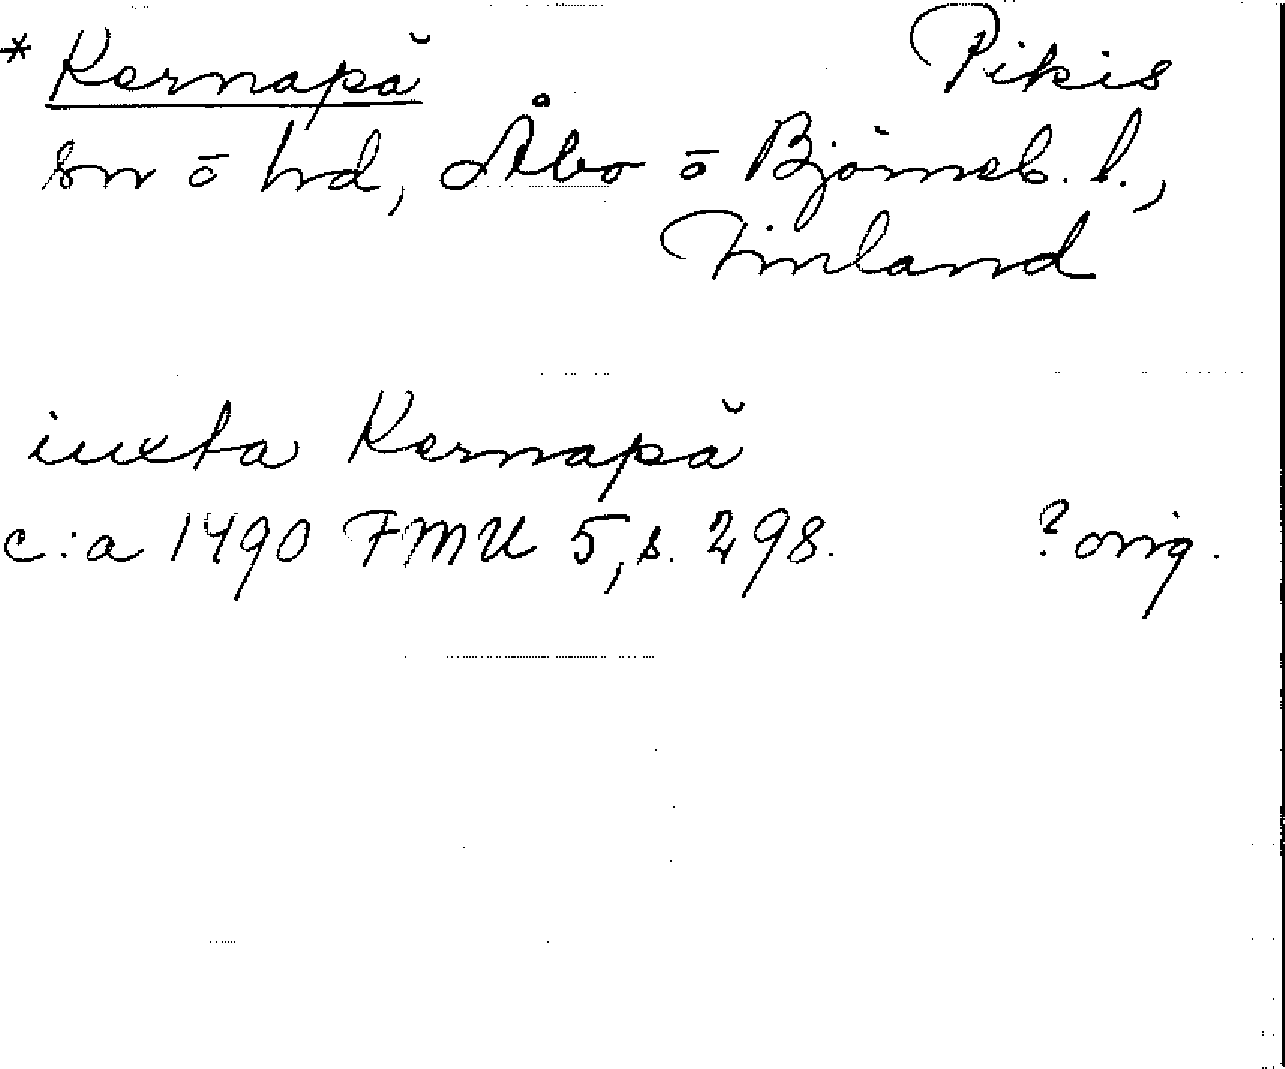 * Kernapä̆ Pikis
sn ō hd, Åbo ō Björneb. l.,
Finland
iuxta Kernapä̆
c:a 1490 FMU 5, s. 298. ? orig.